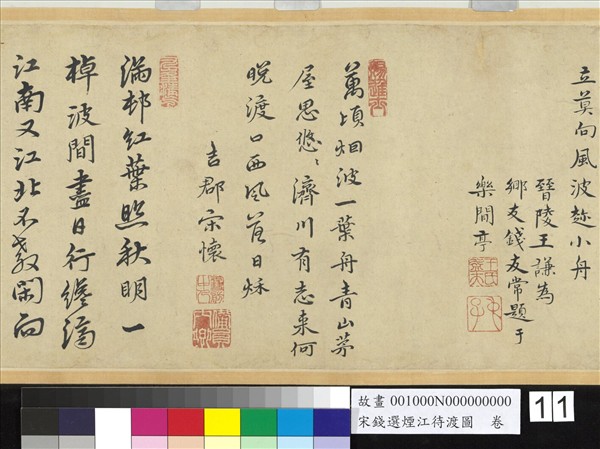 立莫向風波趁小舟
晉陵王謙為
鄉友錢友常題于
樂閒亭
萬頃烟波一葉舟青山茅
屋思悠〻濟川有志來何
晚渡口西風日秋
吉郡宋懷
滿邨紅葉照秋明一
棹波間盡日行纔
江南又江北不教閑向
故畫 001000N000000000
宋錢選煙江待渡圖 卷
11